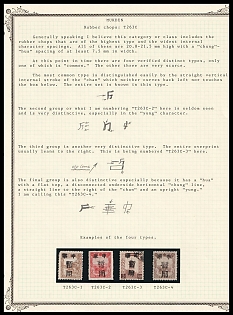 MUKDEN
Rubber chops: T263C
Generally speaking I believe this category or class includes the
rubber chops that are of the highest type and the widest internal
character spacings. All of these are 20.0-21.5 mm high with a "chung"-
"hua" spacing of at least 1.5 mm in width.
At this point in time there are four verified distinct types, only
one of which is "common." The other three are very scarce.
The most common type is distinguished usually by the straight vertical
internal stroke of the "chun" which neither curves back left nor touches
the box below. The entire set is known in this type.
The second group or what I am numbering T263C-2 here is seldom seen
and is very distinctive, especially in the "yung" character.
The third group is another very distinctive type. The entire overprint
usually leans to the right. This is being numbered T263C-3 here.
The final group is also distinctive especially because it has a "hua"
with a flat top, a disconnected underside horizontal "chung" line,
a straight line to the right of the "chun" and an upright "yung."
I am calling this T263C-4.
Examples of the four types.
T263C-1 T263C-2 T263C-3 T263C-4